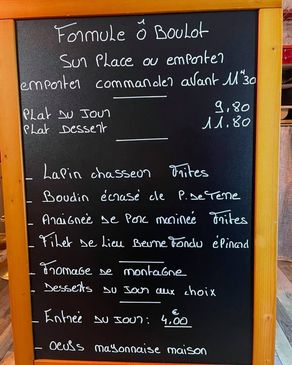 Formule Ô Boulot
Sur Place ou emporter
emporter commander avant 11H30
Plat Du Jour 9,80
Plat Dessert 11,80
- Lapin chasseur Frites
- Boudin écrasé de P. De Terre
- Araignée de Porc marinée Frites
- Filet De Lieu Beurre Fondu épinard
- Fromage De montagne
- Desserts Du Jour aux choix
- Entrée Du Jour : 4,00 €
- Oeufs mayonnaise maison